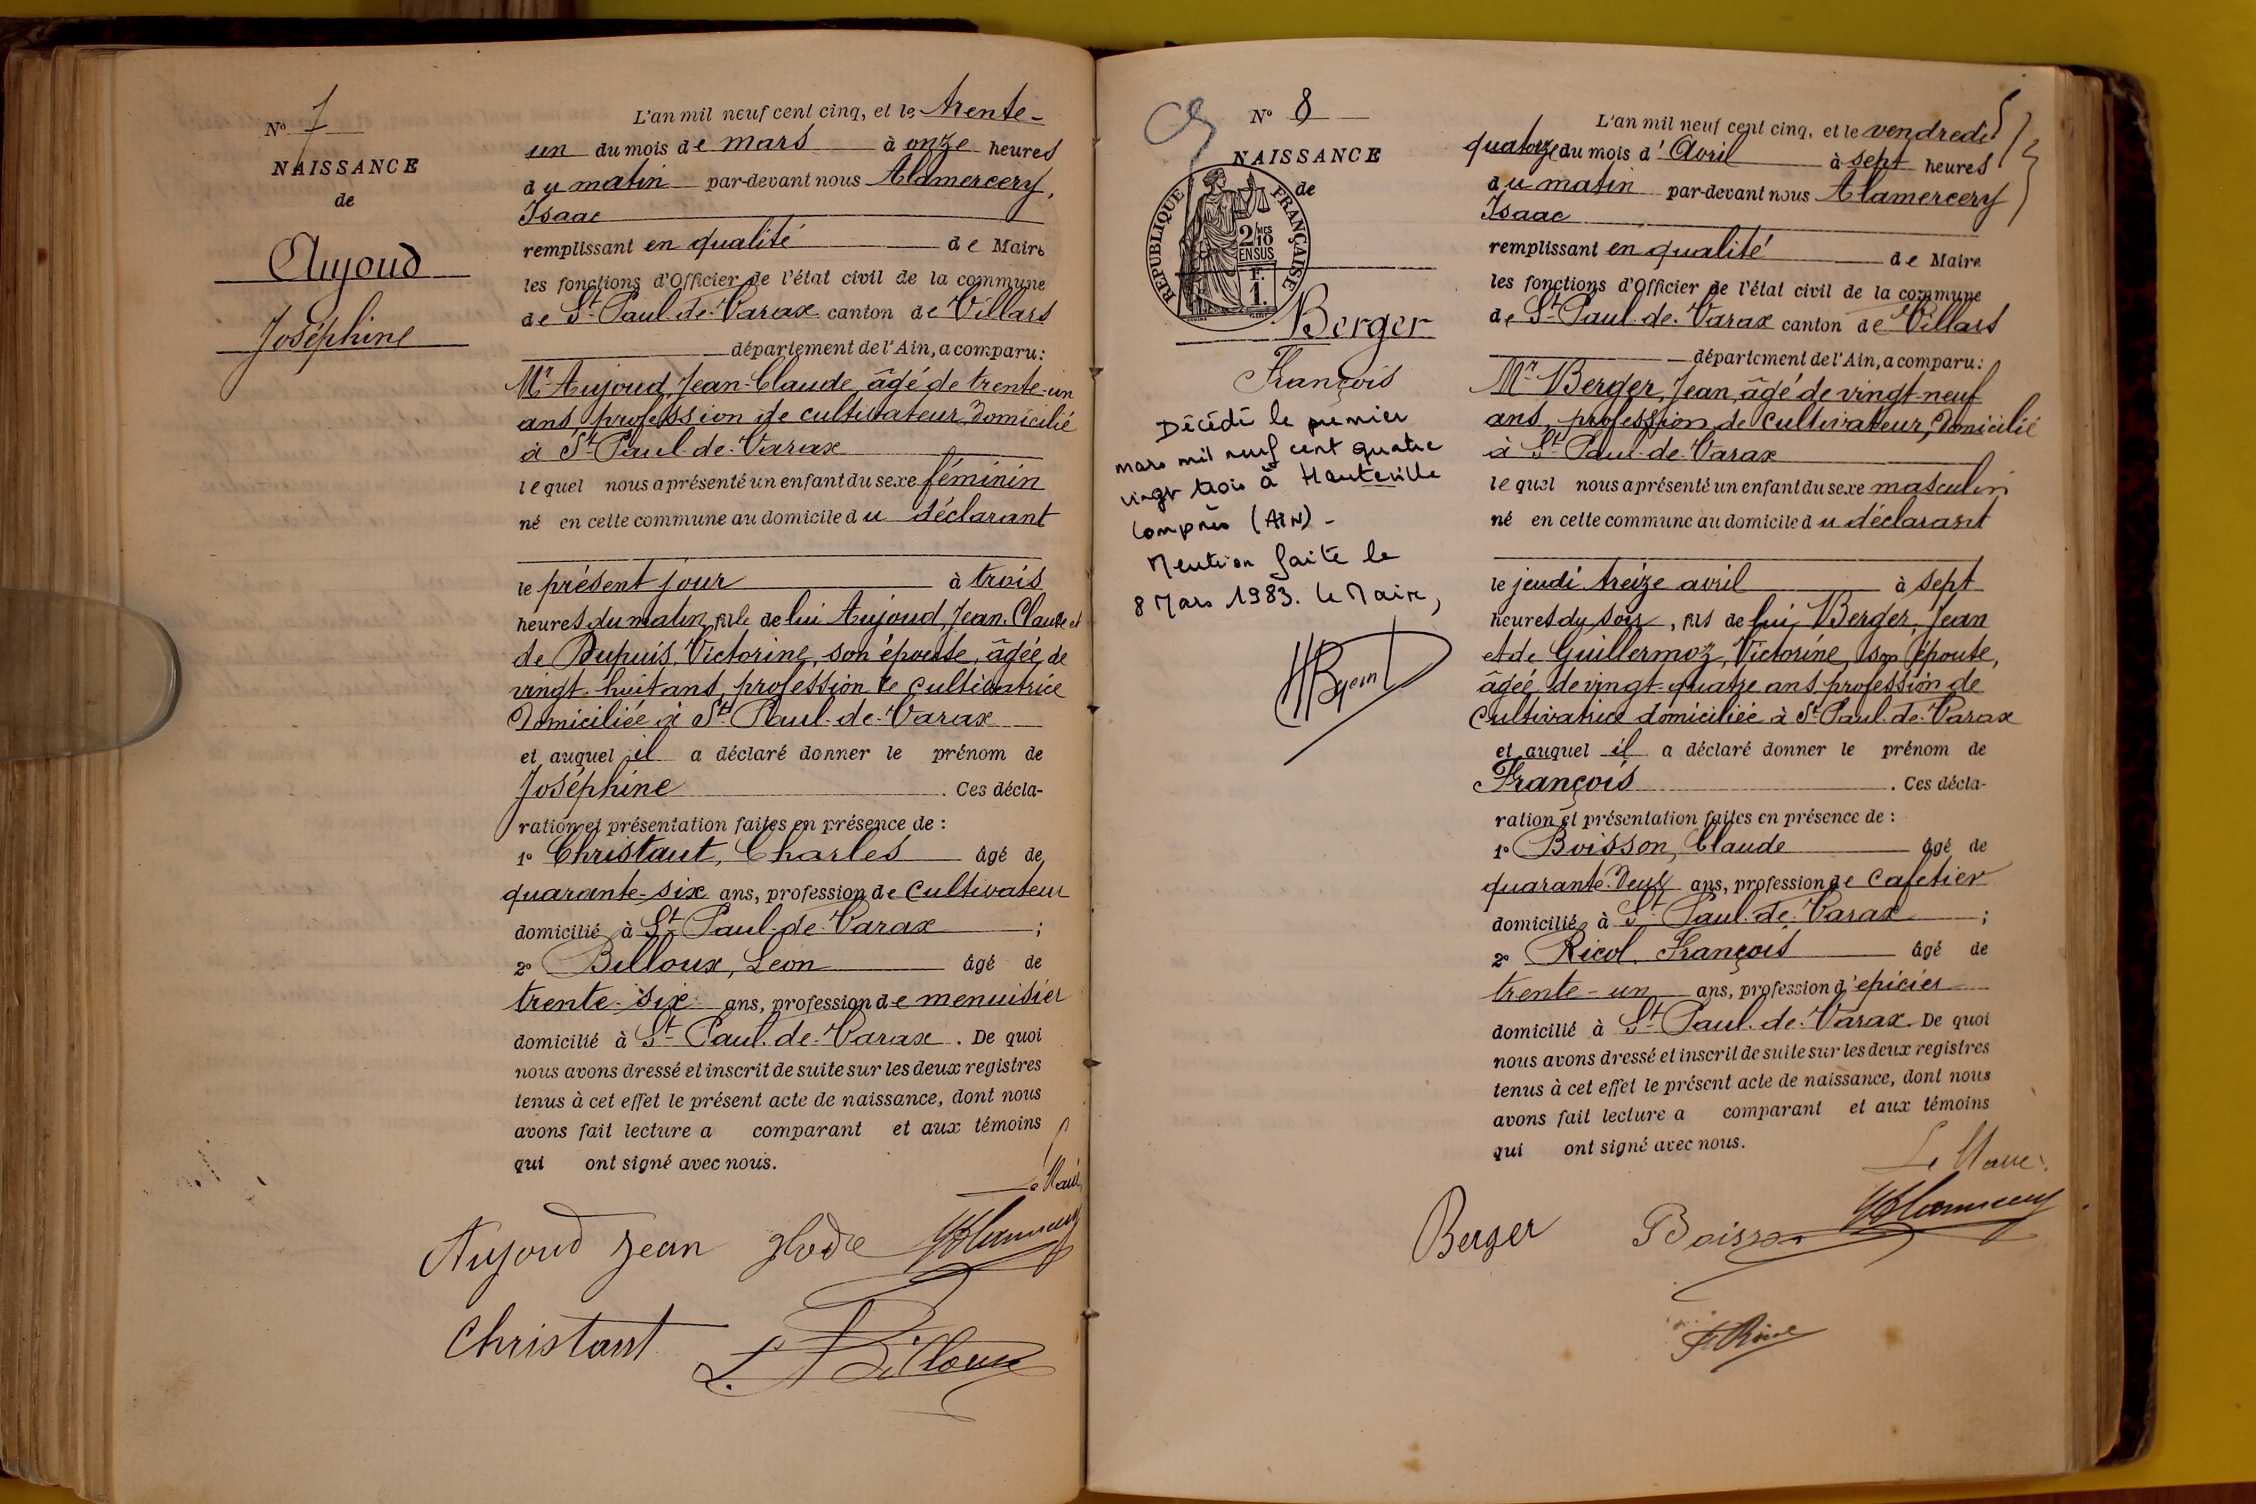 N° 7
NAISSANCE
de
Aujoud
Joséphine
L'an mil neuf cent cinq, et le trente-
un du mois de mars à onze heures
du matin par-devant nous Alamercery,
Isaac
remplissant en qualité de Maire
les fonctions d'Officier de l'état civil de la commune
de St Paul-de-Varax canton de Villars
département de l'Ain, a comparu:
Mr Aujoud, Jean-Claude, âgé de trente-un
ans, profession de cultivateur, domicilié
à St Paul-de-Varax
lequel nous a présenté un enfant du sexe féminin
né en cette commune au domicile du déclarant
le présent jour à trois
heures du matin, fille de lui Aujoud, Jean-Claude et
de Dupuis, Victorine, son épouse, âgée de
vingt-huit ans, profession de cultivatrice
domiciliée à St Paul-de-Varax
et auquel il a déclaré donner le prénom de
Joséphine. Ces décla-
ration et présentation faites en présence de :
1° Christaut, Charles âgé de
quarante-six ans, profession de cultivateur
domicilié à St Paul-de-Varax ;
2° Billoux, Léon âgé de
trente-six ans, profession de menuisier
domicilié à St Paul-de-Varax. De quoi
nous avons dressé et inscrit de suite sur les deux registres
tenus à cet effet le présent acte de naissance, dont nous
avons fait lecture a comparant et aux témoins
qui ont signé avec nous.
Le Maire
Aujoud Jean glode
Christaut L. Billoux
N° 8
NAISSANCE
de
RÉPUBLIQUE FRANÇAISE
2/10 MES
EN SUS
F.
1.
Berger
François
Décédé le premier
mars mil neuf cent quatre
vingt trois à Hauteville
Lompnès (AIN) -
Mention faite le
8 Mars 1983. Le Maire,
L'an mil neuf cent cinq, et le vendredi
quatorze du mois d'Avril à sept heures
du matin par-devant nous Alamercery
Isaac
remplissant en qualité de Maire
les fonctions d'Officier de l'état civil de la commune
de St Paul-de-Varax canton de Villars
département de l'Ain, a comparu:
Mr Berger, Jean, âgé de vingt-neuf
ans, profession de cultivateur, domicilié
à St Paul-de-Varax
lequel nous a présenté un enfant du sexe masculin
né en cette commune au domicile du déclarant
le jeudi treize avril à sept
heures du soir, fils de lui, Berger, Jean
et de Guillermoz, Victorine, son épouse,
âgée de vingt-quatre ans, profession de
cultivatrice domiciliée à St Paul-de-Varax
et auquel il a déclaré donner le prénom de
François. Ces décla-
ration et présentation faites en présence de :
1° Boisson, Claude âgé de
quarante-deux ans, profession de cafetier
domicilié à St Paul-de-Varax ;
2° Ricol, François âgé de
trente-un ans, profession d'épicier
domicilié à St Paul-de-Varax. De quoi
nous avons dressé et inscrit de suite sur les deux registres
tenus à cet effet le présent acte de naissance, dont nous
avons fait lecture a comparant et aux témoins
qui ont signé avec nous.
Le Maire
Berger Boisson